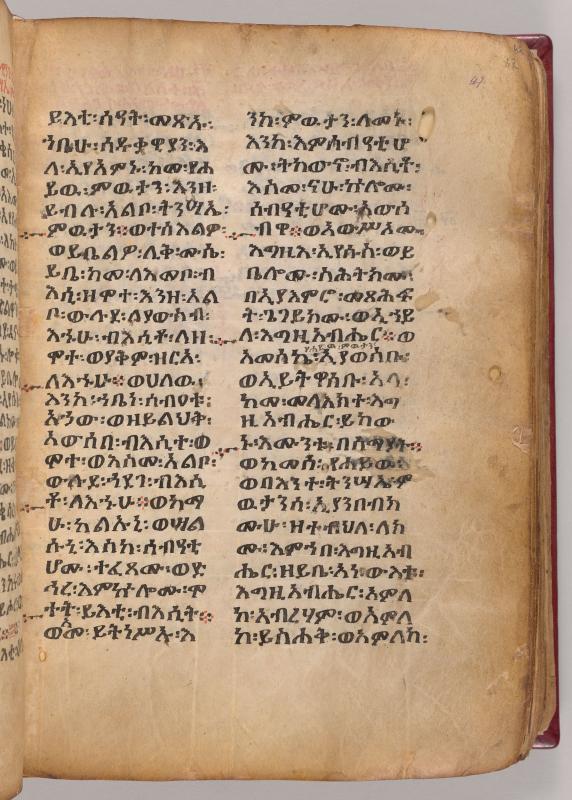 ይእተ፡ሰዓት፡መጽኡ፡
ኀቤሁ፡ሰዱቃዊያን፡እ
ለ፡ኢየአምኑ፡ከመ፡የሐ
ይዉ፡ምዉታን፡እንዘ፡
ይብሉ፡አልቦ፡ትንሣኤ፡
ምዉታን።ወተስእልዎ፡
ወይቤልዎ፡ሊቅ፡ሙሴ፡
ይቤ፡ከመ፡ለእመቦ፡ብ
እሲ፡ዘሞተ፡እንዘ፡አል
ቦ፡ውሉደ፡ለያውስብ፡
እኁሁ፡ብእሲቶ፡ለዘ፡
ሞተ፡ወያቅም፡ዝርአ፡
ለእኁሁ።ወሀለዉ፡
እንከ፡ኀቤነ፡ሰብዐቱ፡
አኀው፡ወዘይልህቅ፡
አውሰበ፡ብእሲተ፡ወ
ሞተ፡ወእስመ፡አልቦ፡
ውሉደ፡ኀደገ፡ብእሲ
ቶ፡ለእኁሁ።ወከማ
ሁ፡ካልኡኒ፡ወሣል
ሱኒ፡እስከ፡ሰብዓቲ
ሆሙ፡ተፈጸሙ፡ወድ
ኅረ፡እምኵሎሙ፡ሞ
ተት፡ይእቲ፡ብእሲት።
ወአመ፡ይትነሥኡ፡እ
ንከ፡ምዉታን፡ለመኑ፡
እንከ፡እምሰብዓቲሆ
ሙ፡ትከውኖ፡ብእሲቶ፡
እስመ፡ናሁ፡ኵሎሙ፡
ሰብዓቲሆሙ፡አውሰ
ብዋ።ወአውሥአሙ
እግዚእ፡ኢየሱስ፡ወይ
ቤሎሙ፡ስሕትክሙ፡
በኢያእምሮ፡መጻሕፍ
ት፡ጌገይክሙ፡ወኀይ
ለ፡እግዚአብሔር።ወ
የሐይዉ፡ምዉታን፡
አመሰኬ፡ኢየወስቡ፡
ወኢይትዋሰቡ፡አላ፡
ከመ፡መላእክተ፡እግ
ዚአብሔር፡ይከው
ኑ፡እሙንቱ፡በሰማያት።
ወከመሰ፡የሐይዉ፡
ወበእንተ፡ትንሣኤ፡ም
ዉታንሰ፡ኢያንበብክ
ሙሁ፡ዘተብህለ፡ለክ
ሙ፡እምኀበ፡እግዚአብ
ሔር፡ዘይቤ፡አነ፡ውእቱ፡
እግዚአብሔር፡አምላ
ከ፡አብረሃም፡ወአምላ
ከ፡ይስሐቅ፡ወአምላከ፡